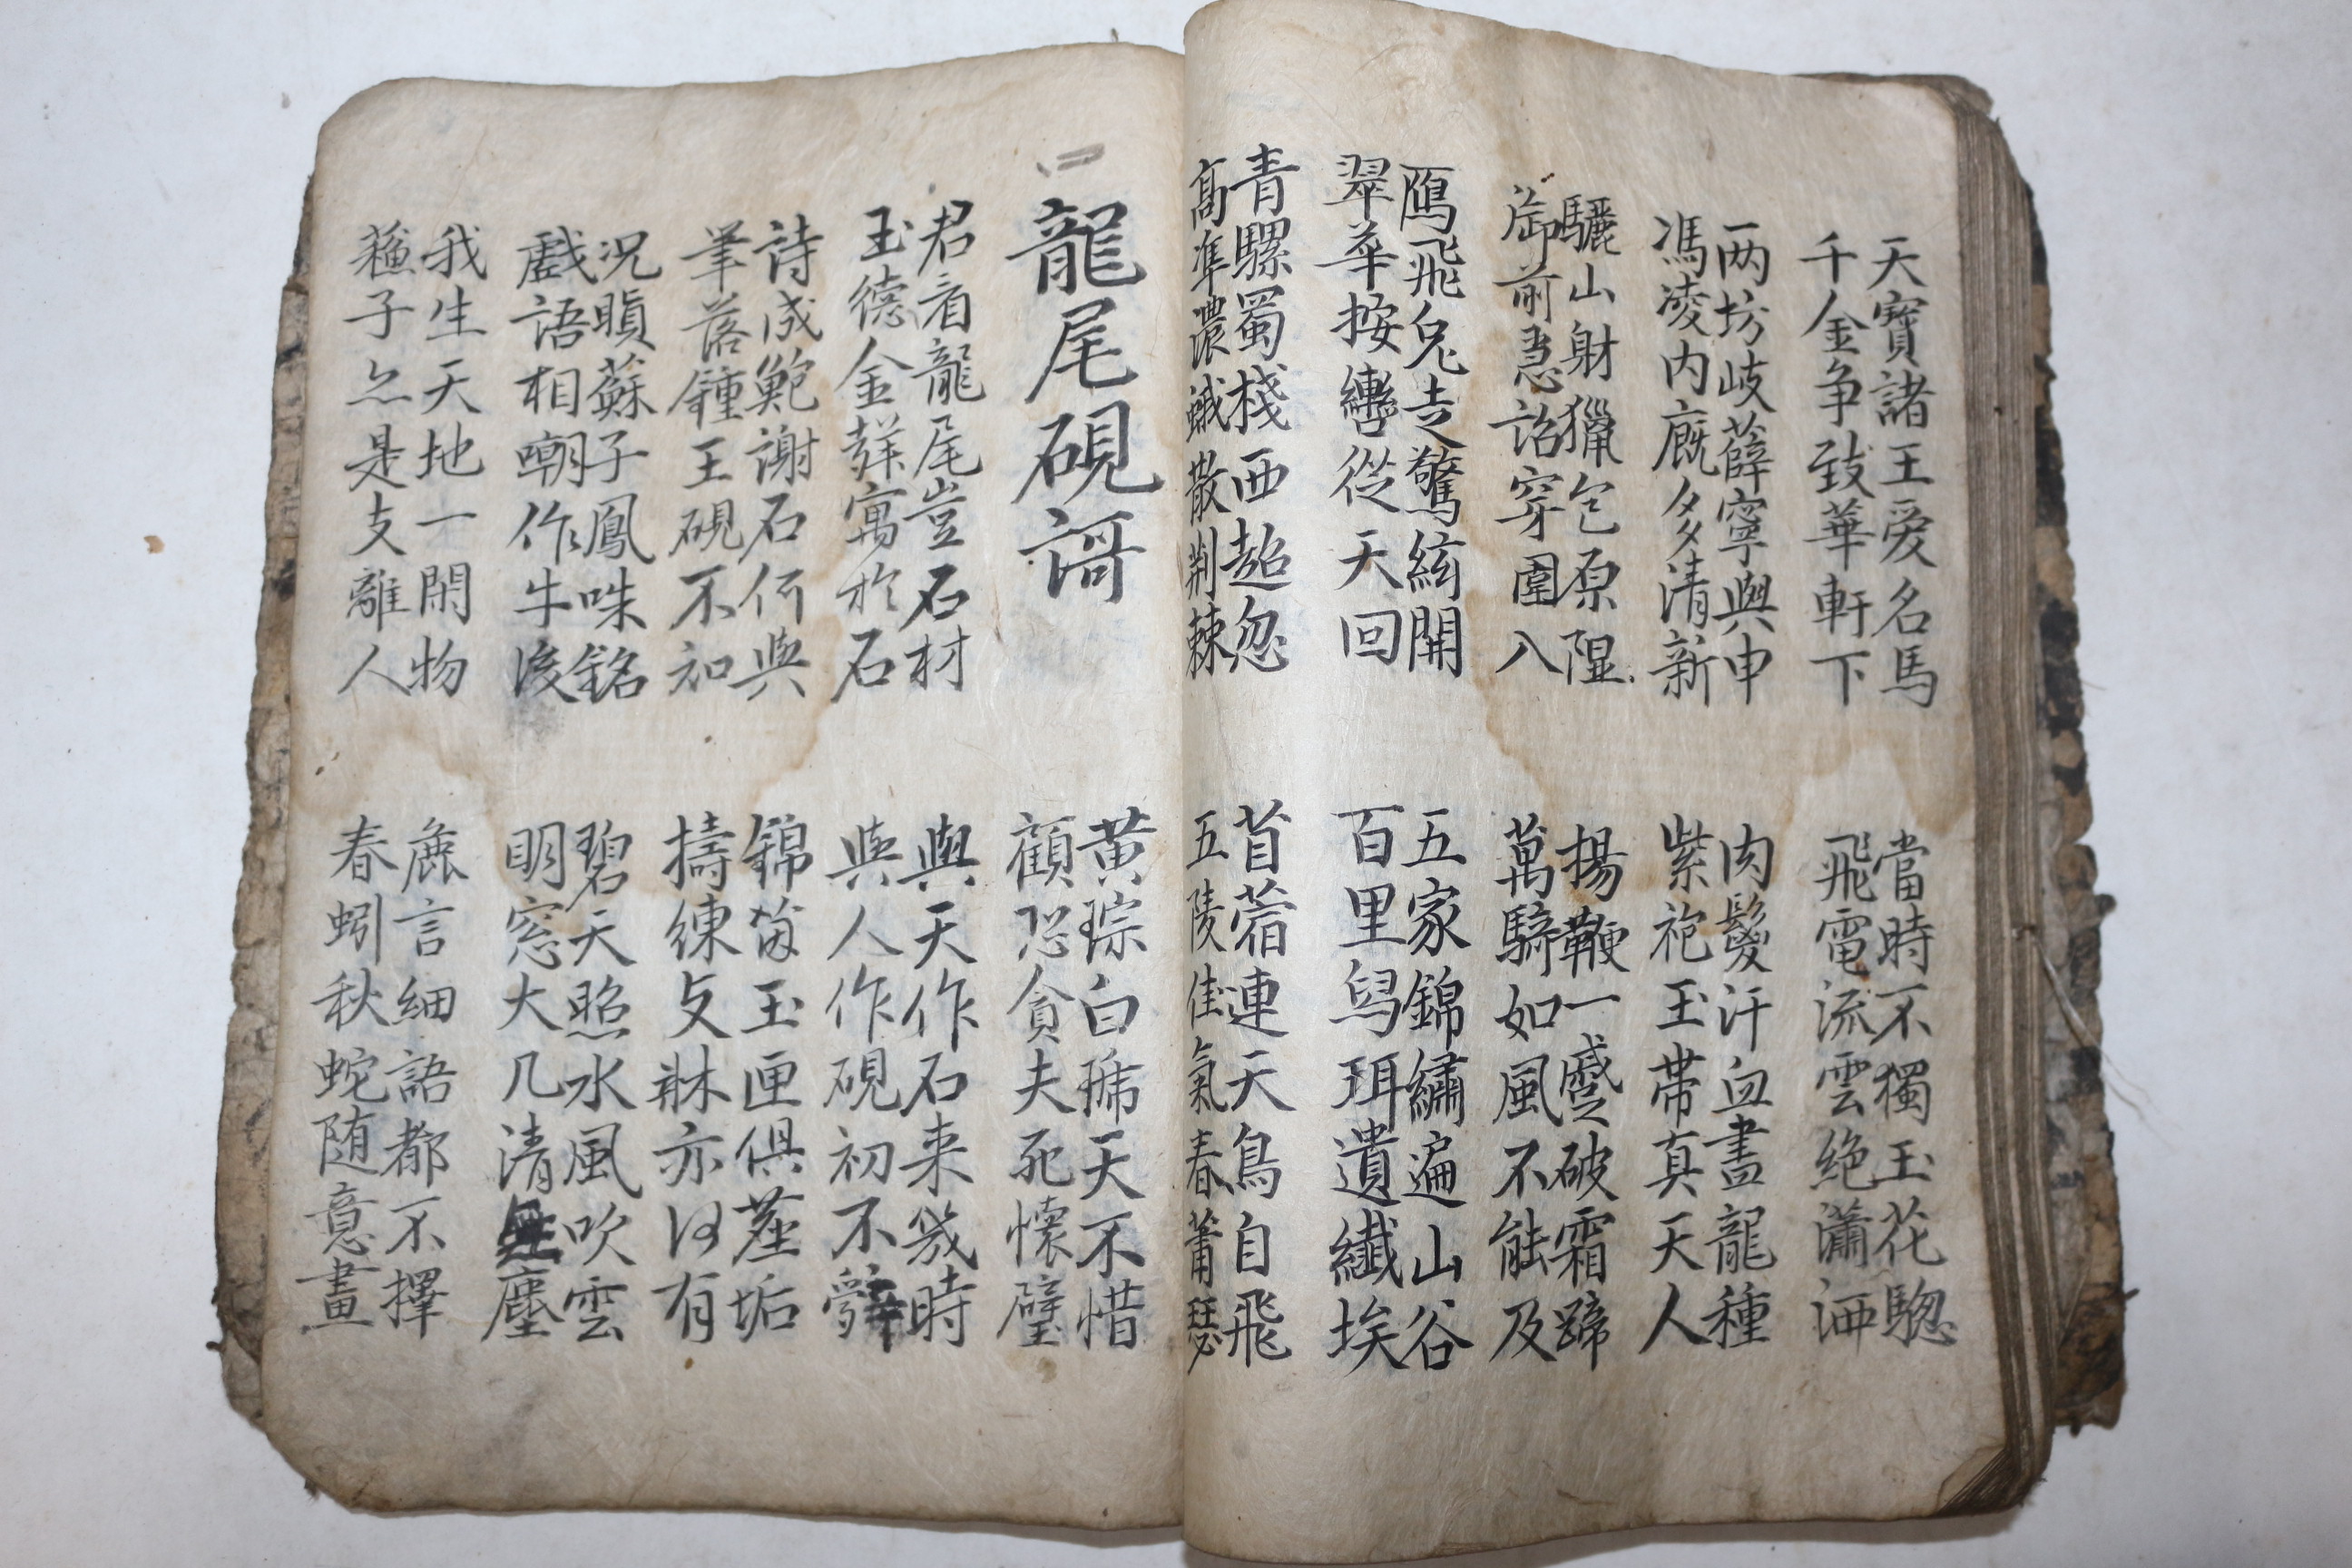 天寶諸王爱名馬
千金争致華軒下
當時不獨玉花驄
飛電流雲絶瀟洒
两坊岐薛寧與申
馮凌内廐多清新
肉鬉汗血盡龍種
紫袍玉帯真天人
驪山射獵包原隰
御前急詔穿圍入
揚鞭一蹙破霜蹄
萬騎如風不能及
鴈飛兔走驚絃開
翠華按轡從天回
五家錦繡遍山谷
百里舄珥遺纖埃
青騾蜀棧西超忽
高準濃蛾散荆棘
苜蓿連天鳥自飛
五陵佳氣春蕭瑟
龍尾硯謌
黄琮白琥天不惜
顧恐貪夫死懷璧
君看龍尾豈石材
玉德金聲寓於石
與天作石来幾時
與人作硯初不辭
詩成鮑謝石何與
筆落鍾王硯不知
錦茵玉匣俱塵垢
擣練支牀亦何有
况瞋蘇子鳳咮銘
戲語相嘲作牛後
碧天照水風吹雲
明窓大几清無塵
我生天地一閑物
蘓子亦是支離人
麁言細語都不擇
春蚓秋蛇随意畫